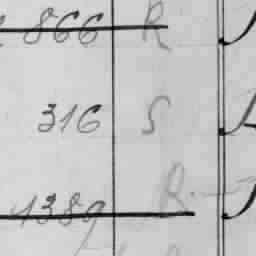 866 R
316 S
1389 R.